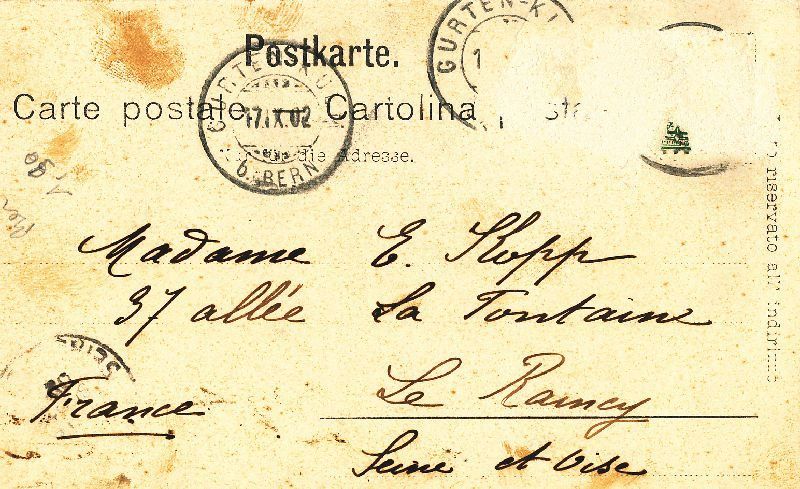 Postkarte.
GURTEN-KU
17.IX.02
b. BERN
GURTEN-K
1
Carte postale — Cartolina
die Adresse.
riservato all' indirizzo
1,90
Madame E. Kopp
37 allée La Fontaine
Le Raincy
France
Seine et Oise